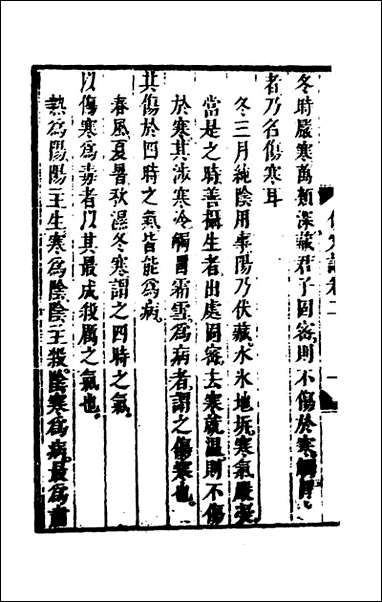 傷寒論卷二 一
冬時嚴寒萬類深藏君子固密則不傷於寒觸冒
者乃名傷寒耳
冬三月純陰用事陽乃伏藏水氷地坼寒氣嚴凝
當是之時善攝生者出處固密去寒就温則不傷
於寒其涉寒冷觸冒霜雪為病者謂之傷寒也
其傷於四時之氣皆能為病
春風夏暑秋濕冬寒謂之四時之氣
以傷寒為毒者以其最成殺厲之氣也
熱為陽陽主生寒為陰陰主殺陰寒為病最為肅